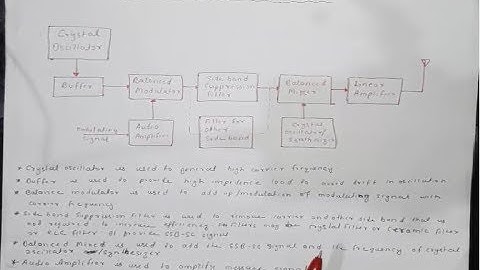 Crystal
Oscillator
Buffer
Balanced
Modulator
Side band
Suppression
Filter
Balanced
Mixer
Linear
Amplifier
Modulating
Signal
Audio
Amplifier
Filter for
other
Side band
Crystal
oscillator/
synthesizer
* Crystal oscillator is used to general high carrier frequency
* Buffer is used to provide high impedence load to avoid drift in oscillator
* Balance modulator is used to add up/modulation of modulating signal with
carrier frequency
* Side band suppression filter is used to remove carrier and other side band that is
not required to increase efficiency filters may be crystal filter or ceramic filter
or filter it give SSB-SC signal
* Balanced Mixer is used to add the SSB-SC signal and the frequency of crystal
oscillator / synthesizer
* Audio Amplifier is used to amplify message signal